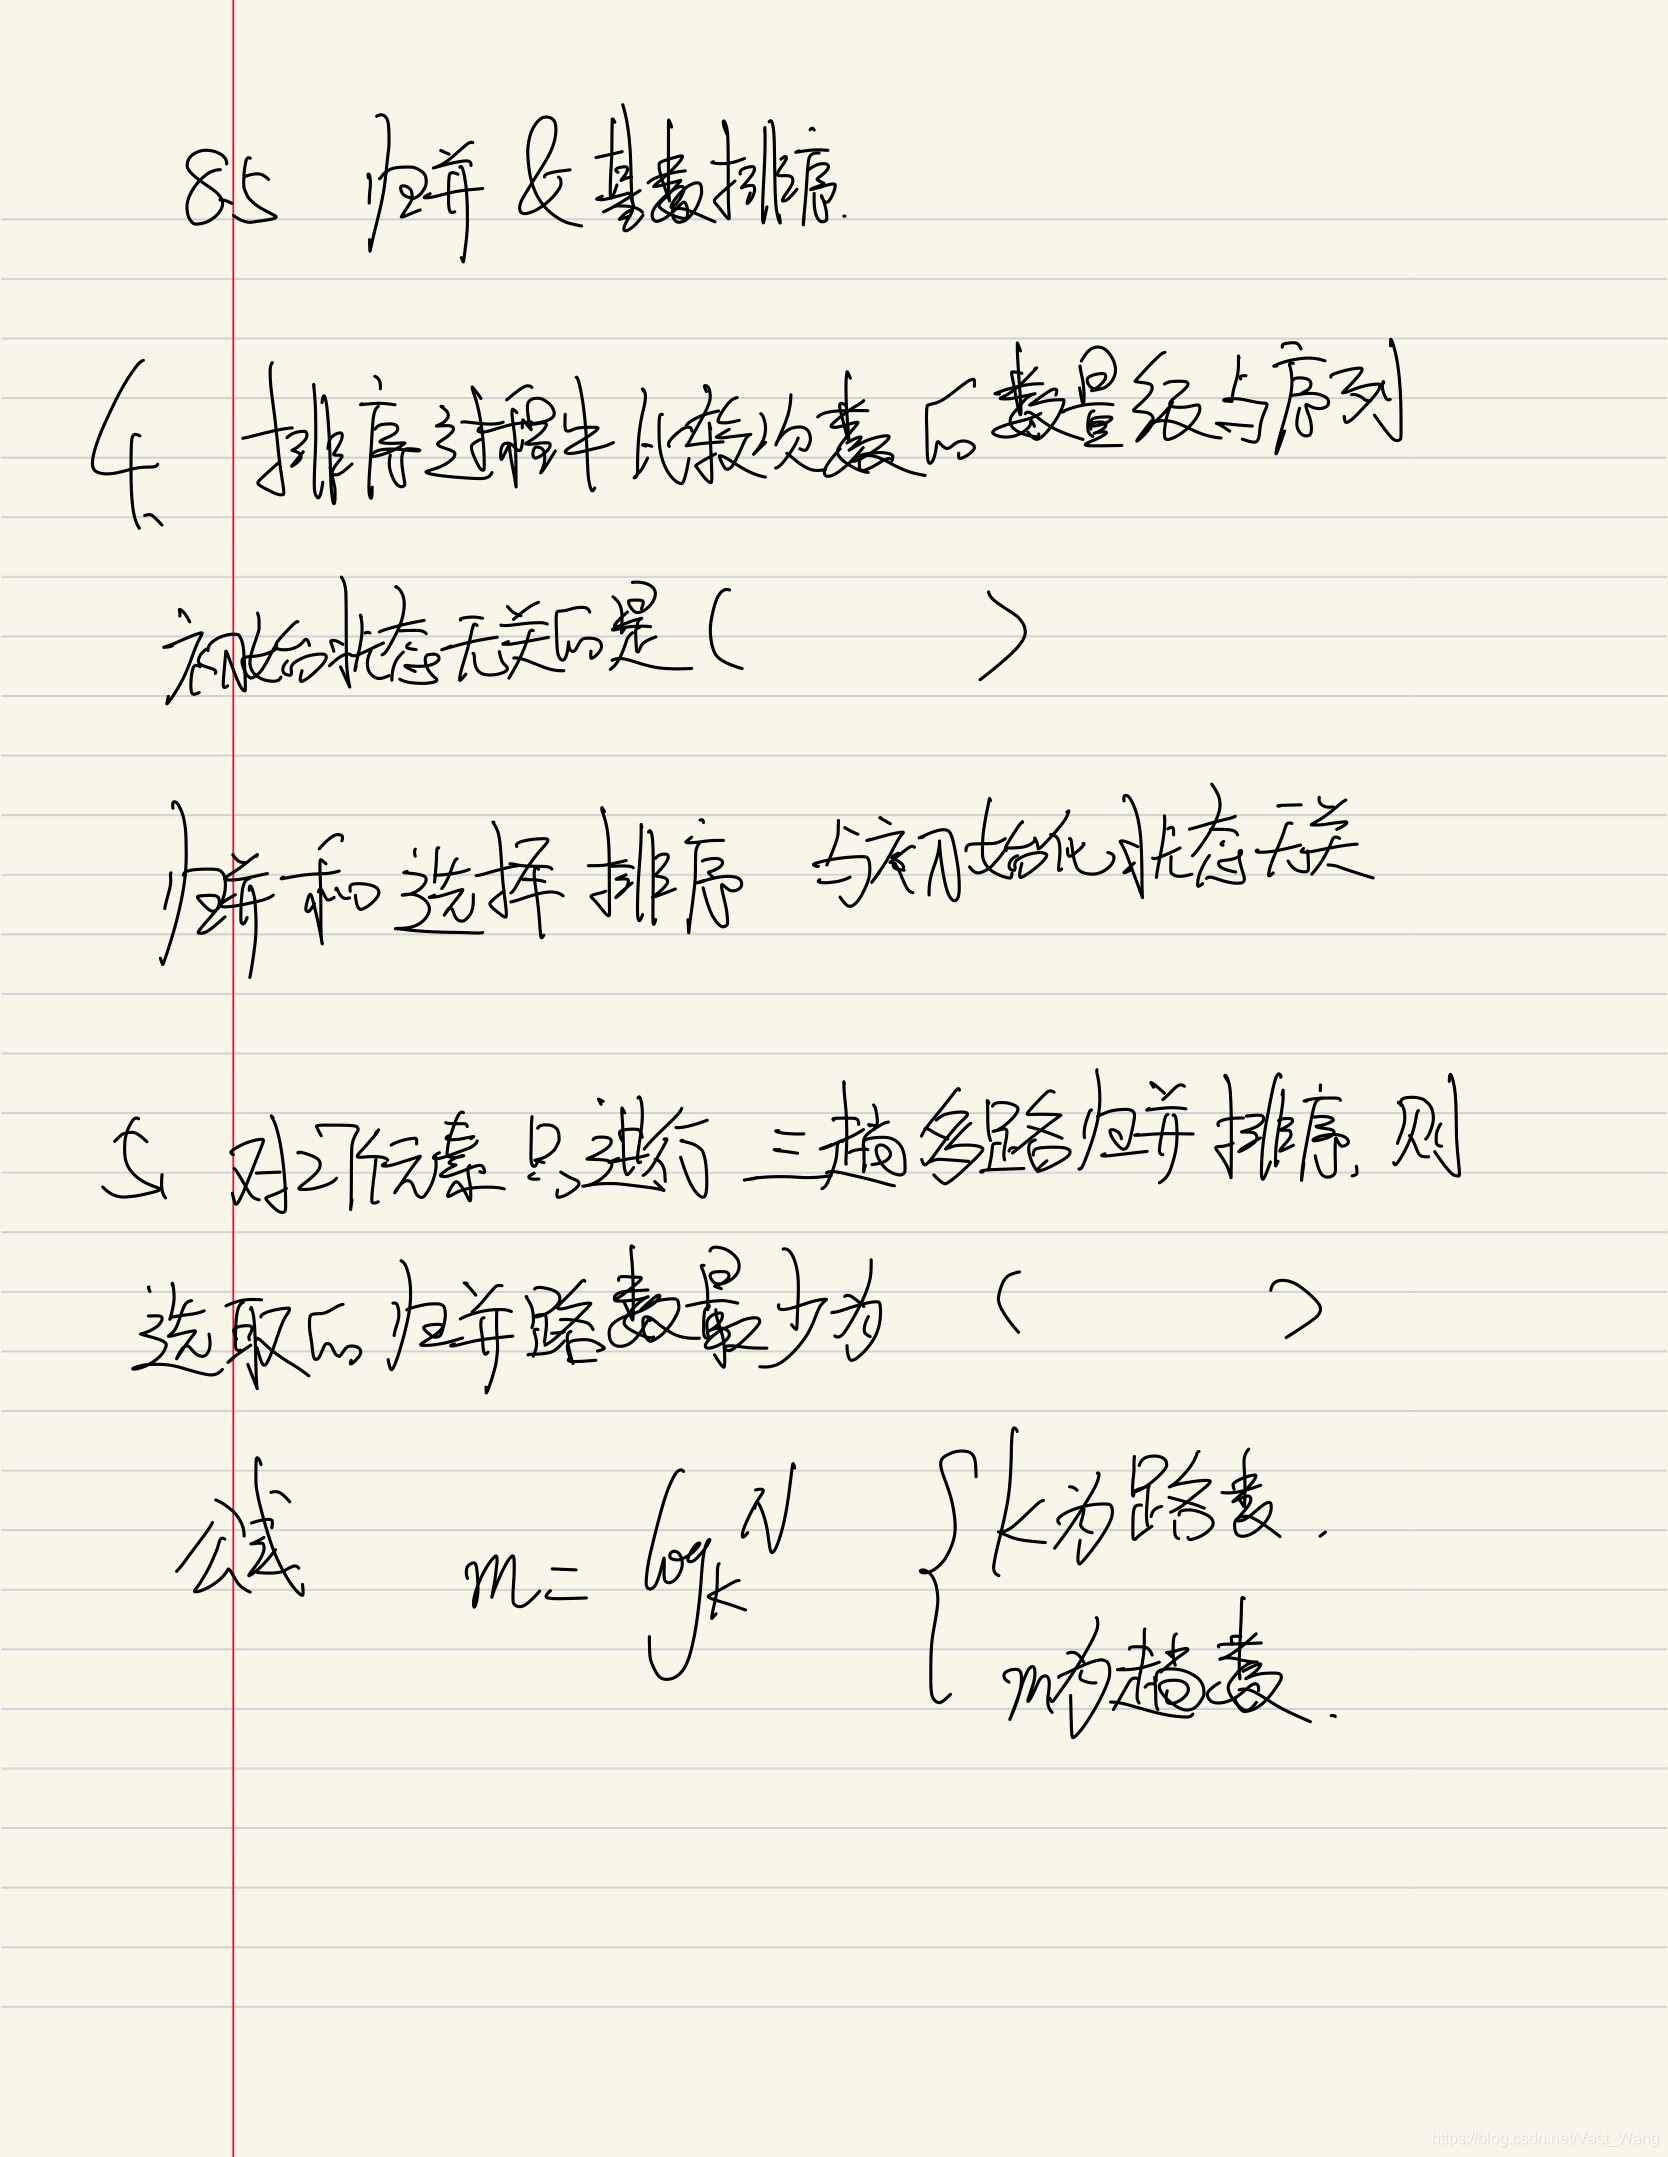 85 归并 & 基数排序.
4、排序过程中比较次数的数量级与序列
初始状态无关的是( )
归并和选择排序 与初始化状态无关
5 对27个元素只进行三趟多路归并排序,则
选取的归并路数最少为 ( )
公式 m = logₖN { k为路数.
m为趟数.
https://blog.csdn.net/Vast_Wang